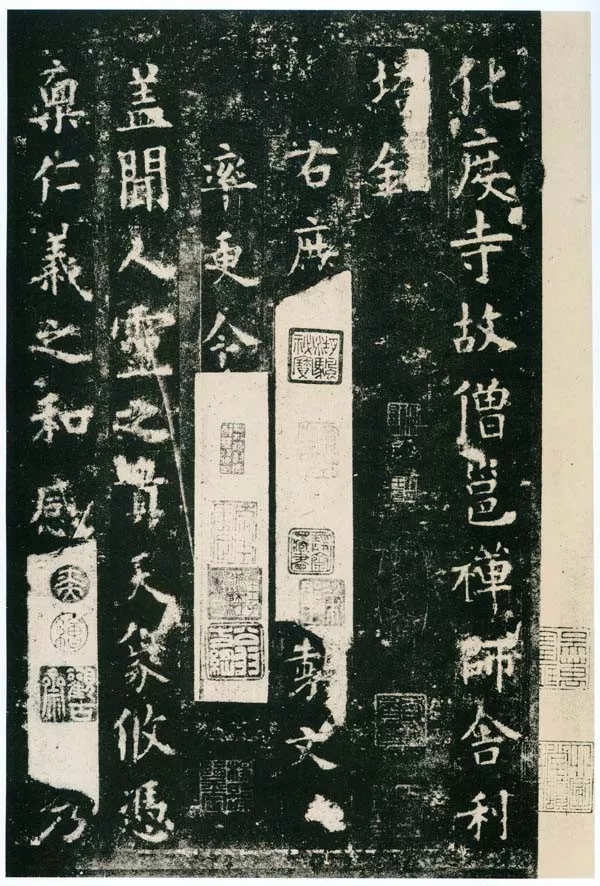 化度寺故僧邕禅師舍利
塔銘
右庶製文
率更令
盖聞人靈之貴天象攸憑
稟仁義之和感乃